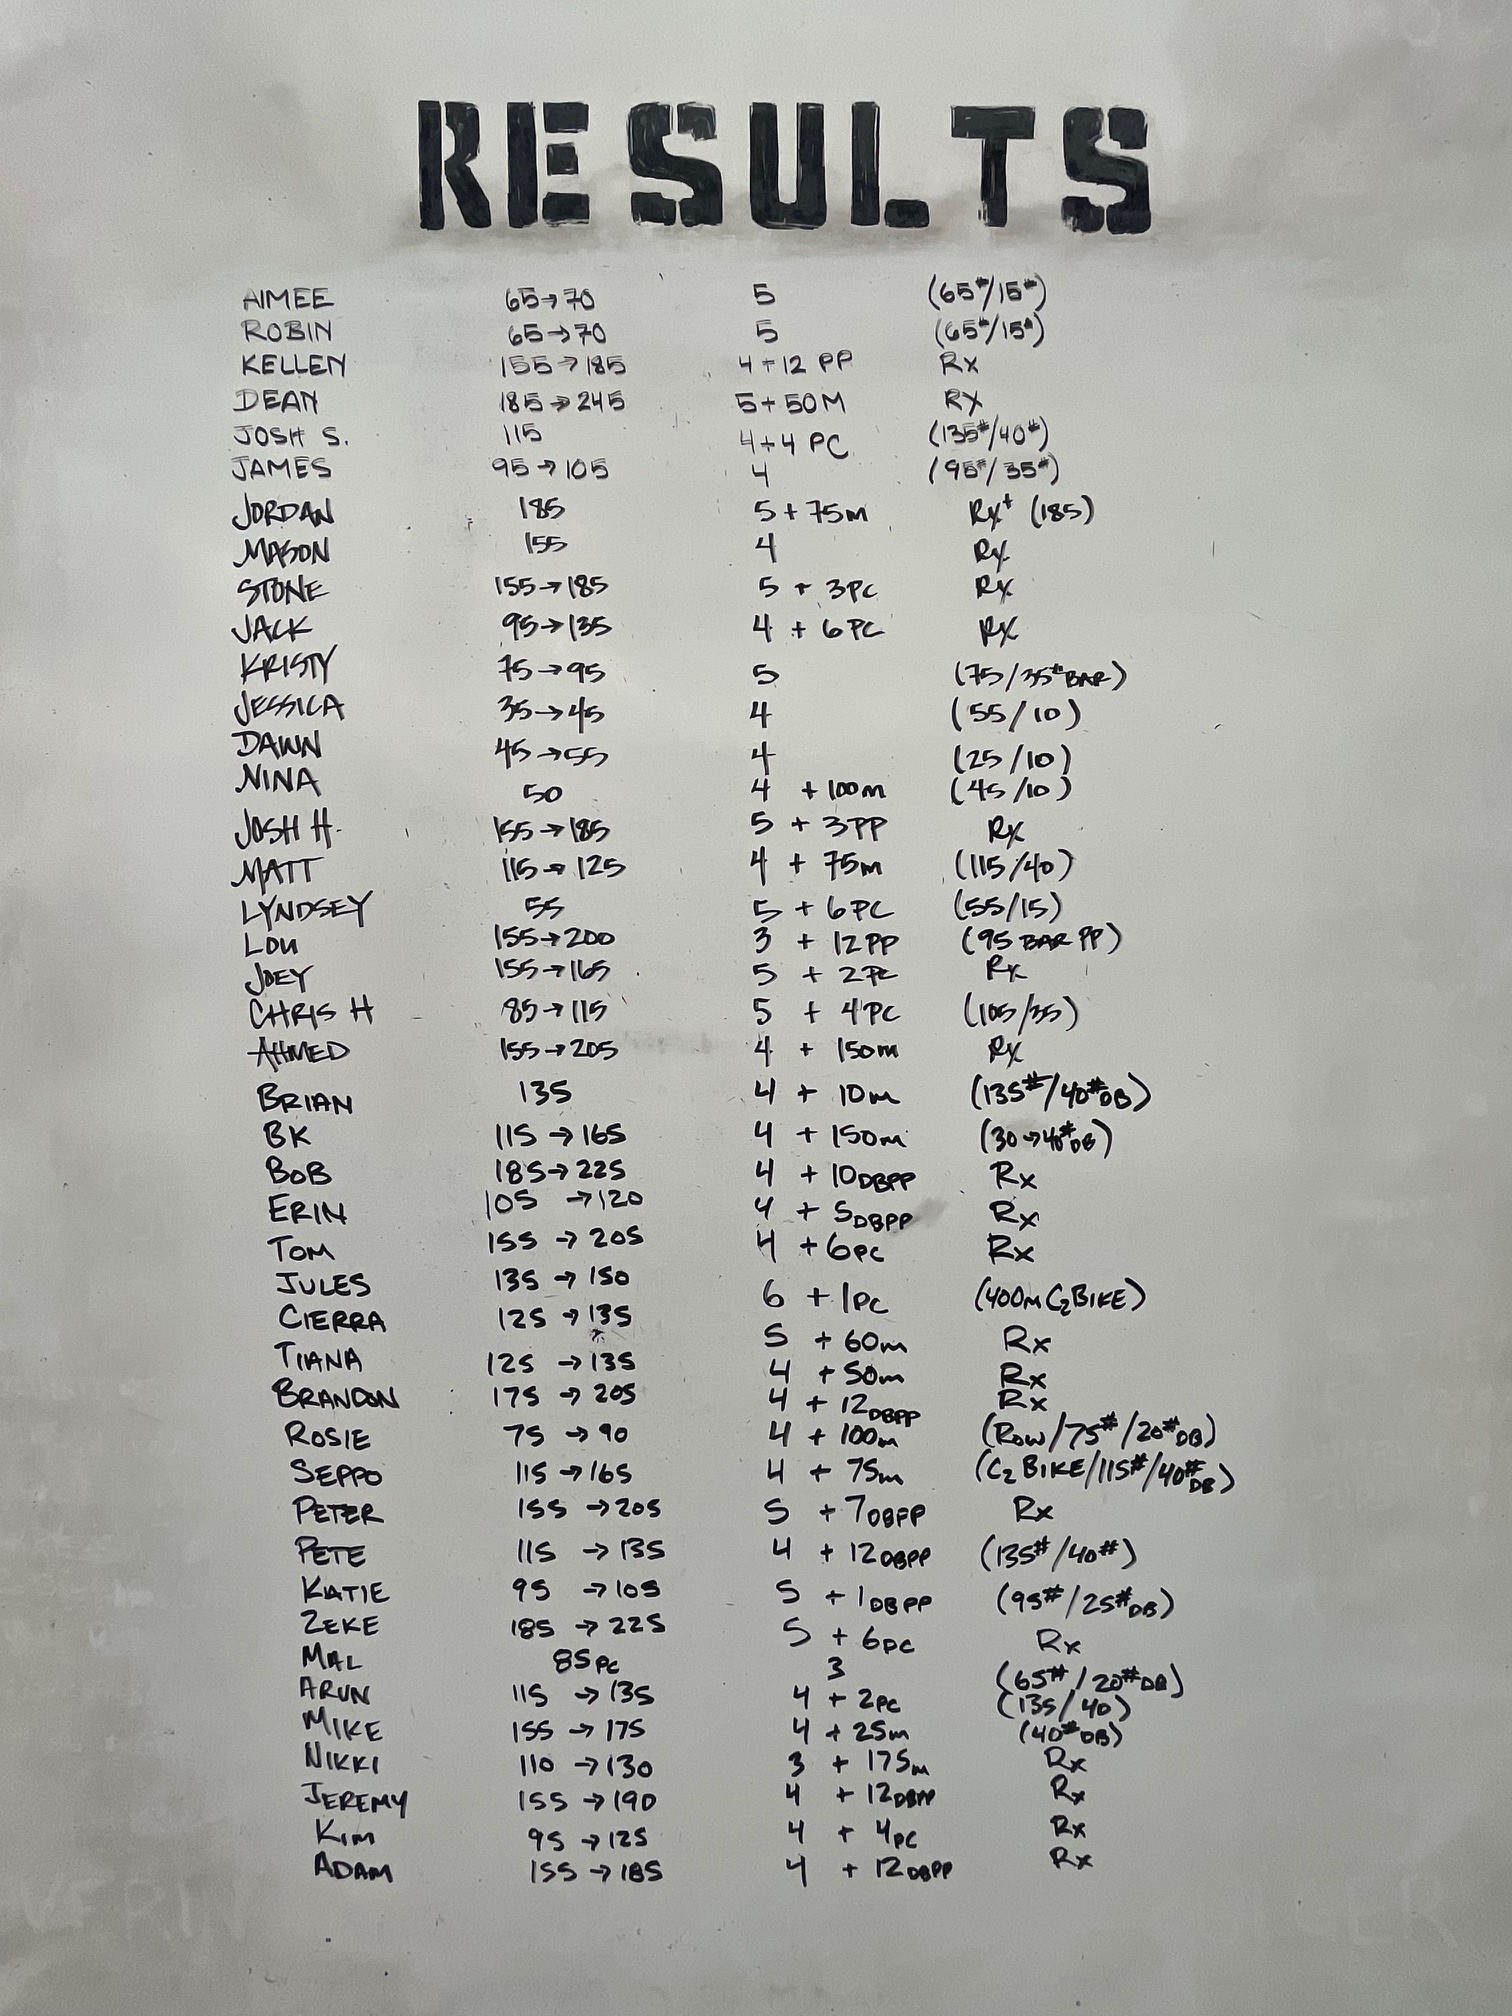 RESULTS
AIMEE 65→70 5 (65#/15#)
ROBIN 65→70 5 (65#/15#)
KELLEN 155→185 4+12 PP Rx
DEAN 185→245 5+50M RX
JOSH S. 115 4+4 PC (135#/40#)
JAMES 95→105 4 (95#/35#)
JORDAN 185 5+75m Rx+ (185)
MASON 155 4 Rx
STONE 155→185 5 + 3PC Rx
JACK 95→135 4 + 6PC RX
KRISTY 75→95 5 (75/35#BAR)
JESSICA 35→45 4 (55/10)
DAWN 45→55 4 (25/10)
NINA 50 4 +100m (45/10)
JOSH H. 155→185 5 + 3PP Rx
MATT 115→125 4 + 75m (115/40)
LYNDSEY 55 5 + 6PC (55/15)
LOU 155→200 3 + 12PP (95 BAR PP)
JOEY 155→165 5 + 2PC Rx
CHRIS H 85→115 5 + 4PC (105/35)
AHMED 155→205 4 + 150m Rx
BRIAN 135 4 + 10m (135#/40#DB)
BK 115→165 4 +150m (30→40#DB)
BOB 185→225 4 +10DBPP Rx
ERIN 105→120 4 + 5DBPP Rx
TOM 155→205 4 +6PC Rx
JULES 135→150 6 +1PC (400m C2BIKE)
CIERRA 125→135 5 +60m Rx
TIANA 125→135 4 +50m Rx
BRANDON 175→205 4 +12DBPP Rx
ROSIE 75→90 4 +100m (ROW/75#/20#DB)
SEPPO 115→165 4 + 75m (C2 BIKE/115#/40#DB)
PETER 155→205 5 +7DBPP Rx
PETE 115→135 4 +12DBPP (135#/40#)
KATIE 95→105 5 +1DBPP (95#/25#DB)
ZEKE 185→225 5 + 6PC Rx
MAL 85PC 3 (65#/20#DB)
ARUN 115→135 4 + 2PC (135/40)
MIKE 155→175 4 +25m (40#DB)
NIKKI 110→130 3 + 175m Rx
JEREMY 155→190 4 + 12DBPP Rx
KIM 95→125 4 + 4PC Rx
ADAM 155→185 4 + 12DBPP Rx